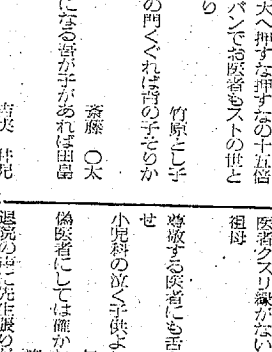 大へ押すな押すなの十五倍
バンでお医者もストの世と
り
竹原とし子
の門くぐれば背の子そりか
斎藤〇太
になる吾が子があれば田畠
医者クスリ縁がない
祖母
尊敬する医者にも舌
せ
小児科の泣く子供よ
偽医者にしては確か
退院の